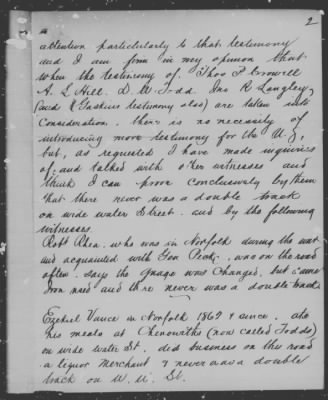 2
attention particularly to that testimony
and I am firm in my opinion that
when the testimony of Thos F Crowell
A. L Hill. D. W Todd. Jno R Langley,
(and Gaskins testimony also) are taken into
consideration. there is no necessity of
introducing more testimony for the U.S,
but, as requested I have made inquiries
of, and talked with other witnesses and
think I can prove conclusively by them
that there never was a double track
on wide water Street. and by the following
witnesses.
Robt Rhea. who was in Norfolk during the war
and acquainted with Gen Peck, was on the road
often. says the guage was changed, but same
Iron used and there never was a double track
Ezekiel Vance in Norfolk 1862 & since. ate
his meals at Chenowiths (now called Todds)
on wide water St. did business on the road
a liquor Merchant & never was a double
track on W. W. St.